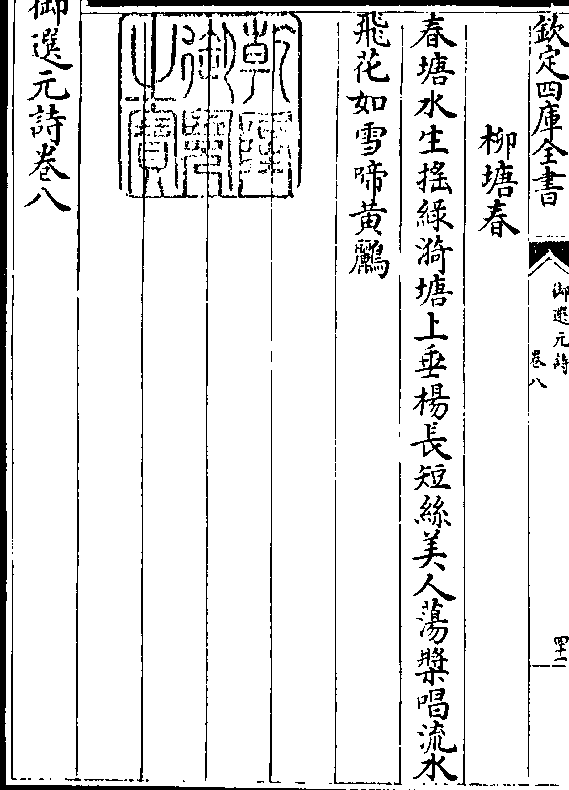 欽定四庫全書
御選元詩
卷八
四十二
柳塘春
春塘水生搖綠漪塘上垂楊長短絲美人蕩槳唱流水
飛花如雪啼黃鸝
乾隆御覽之寶
御選元詩卷八